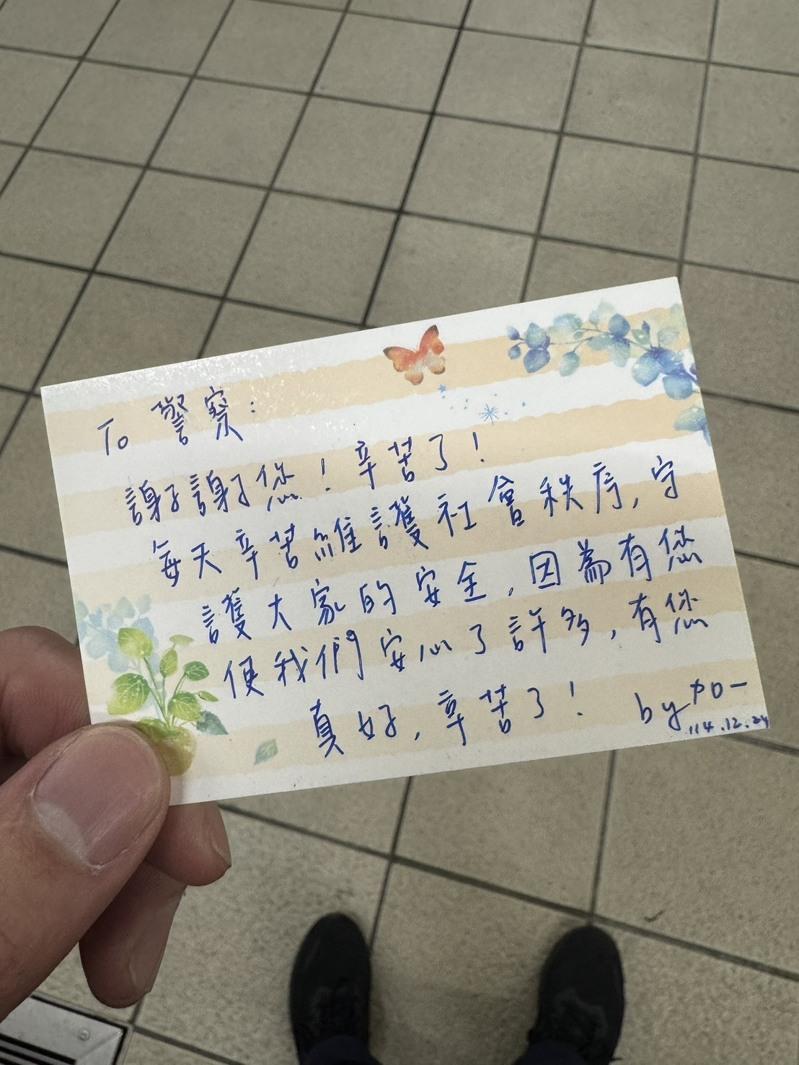 To 警察:
謝謝您!辛苦了!
每天辛苦維護社會秩序,守
護大家的安全,因為有您
使我們安心了許多,有您
真好,辛苦了! by
114.12.24